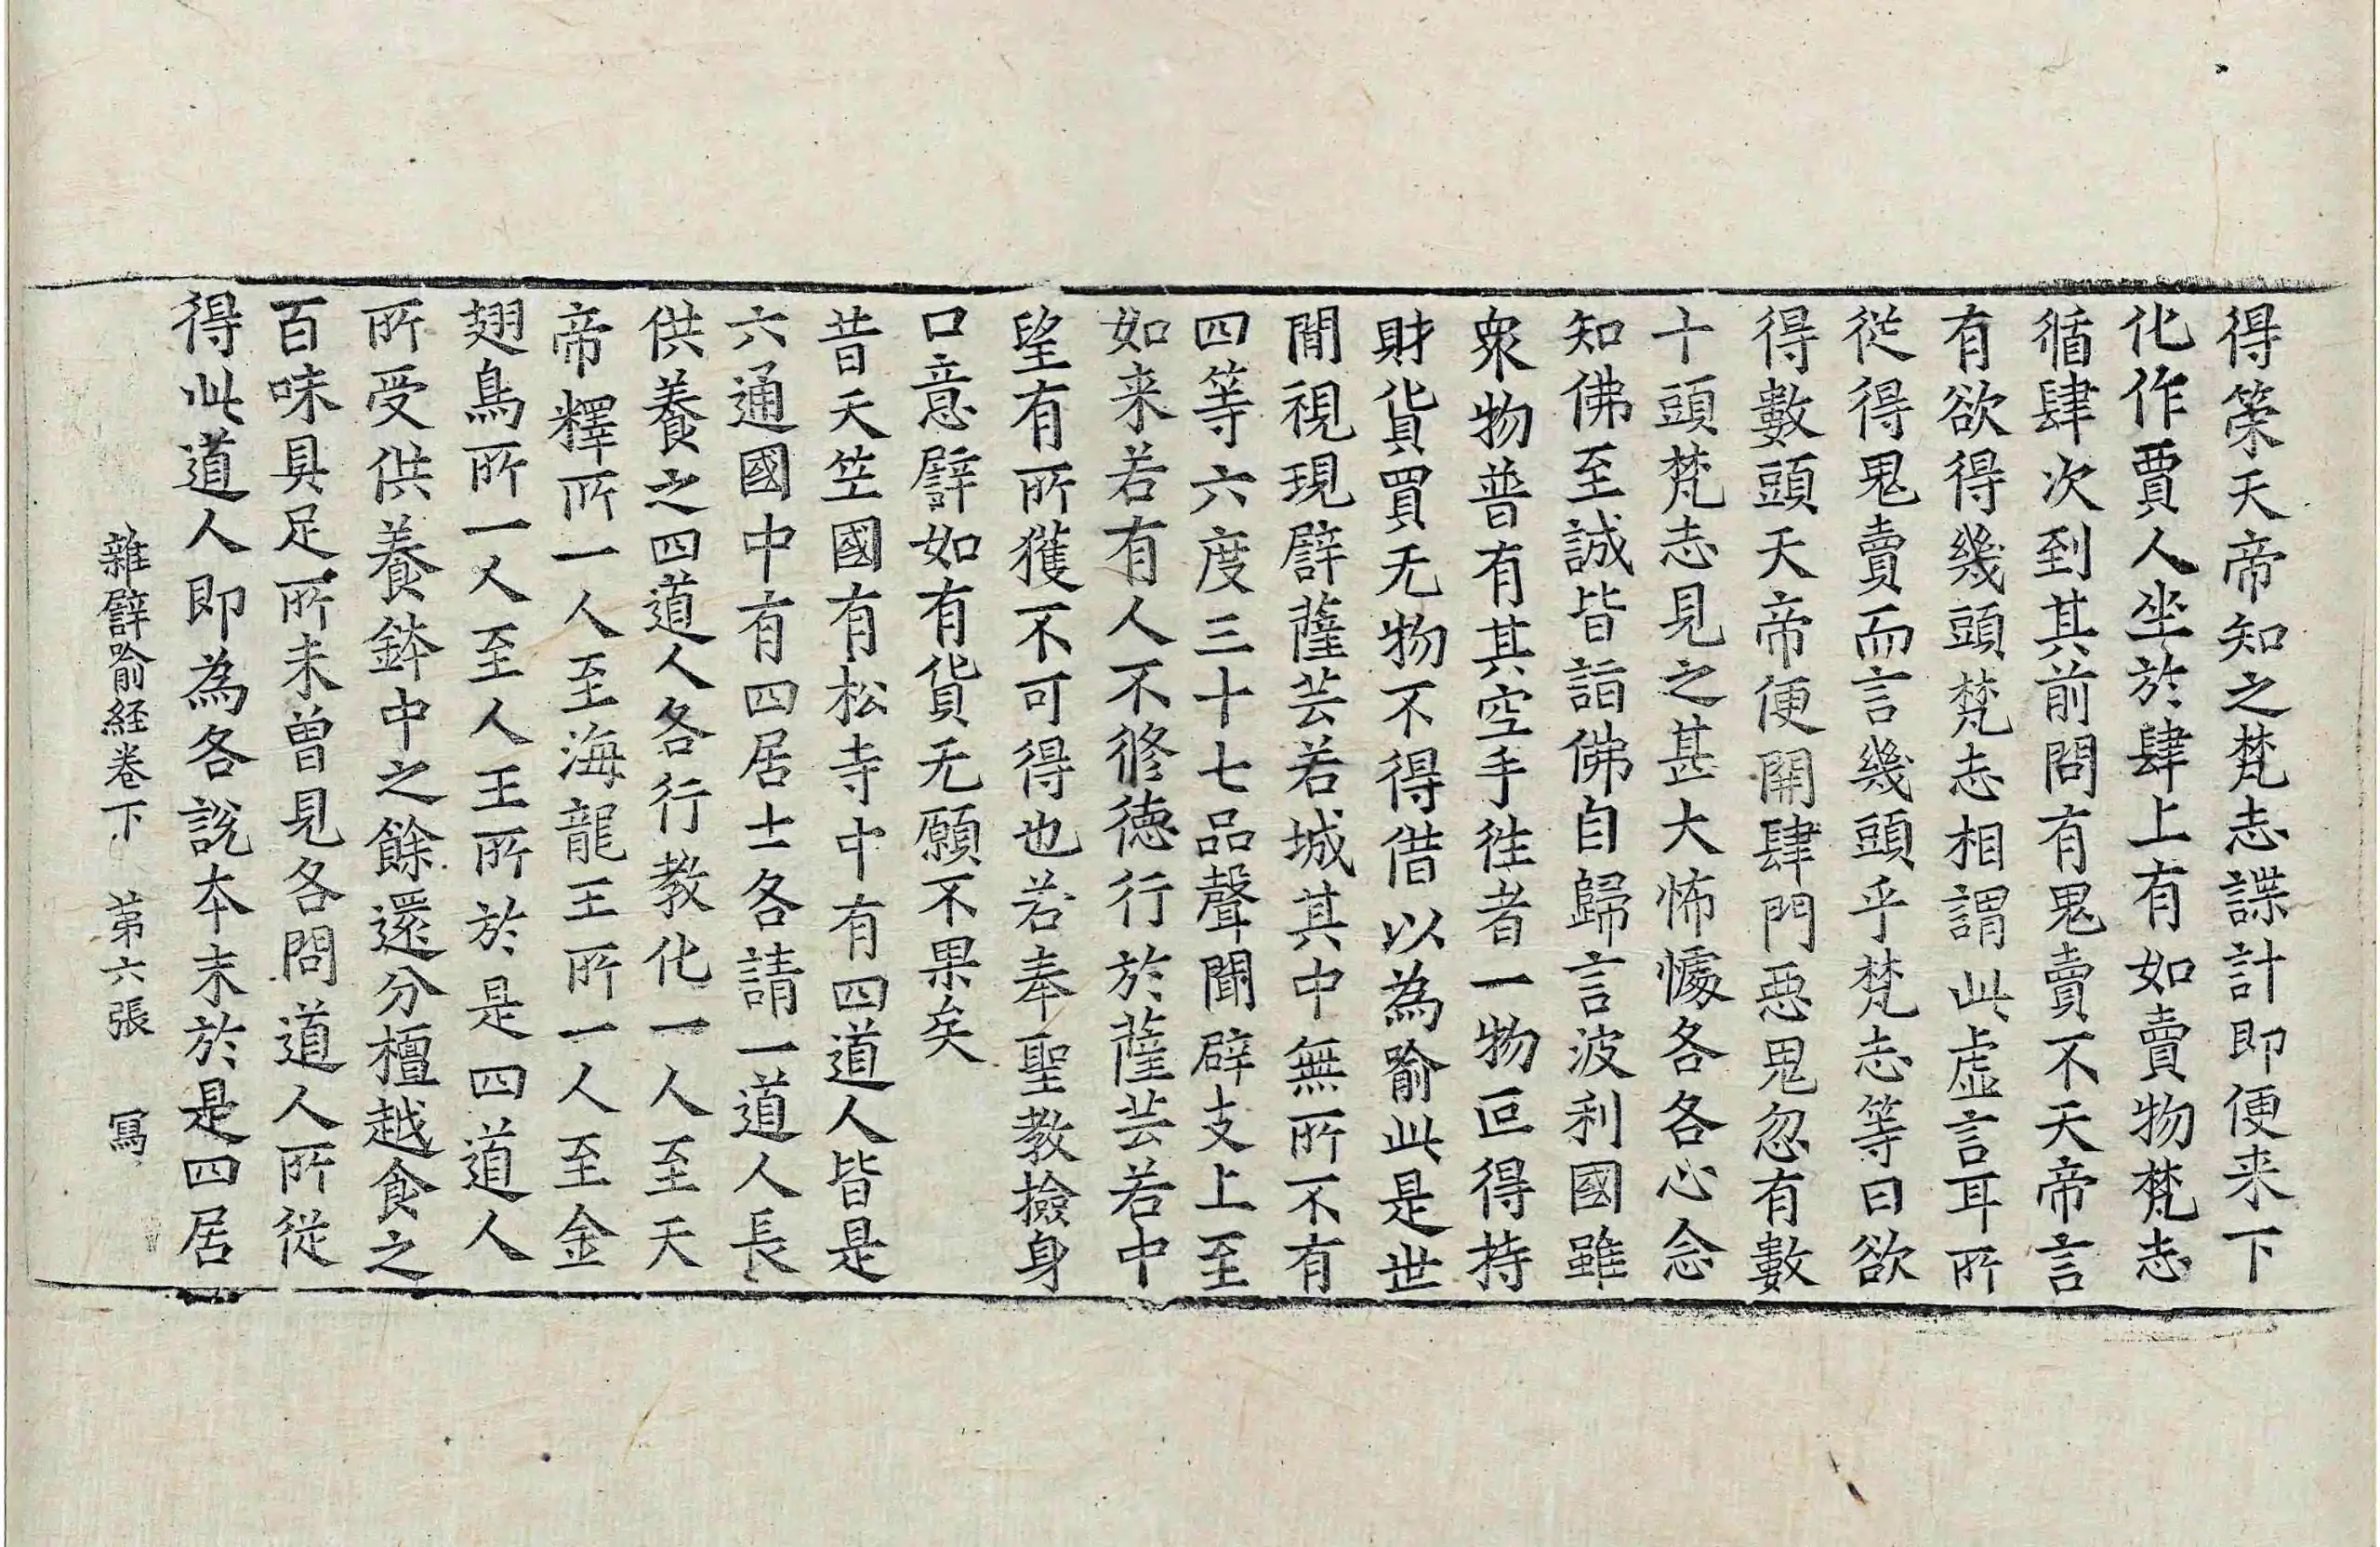 得榮天帝知之梵志諜計即便来下
化作賈人坐於肆上有如賣物梵志
循肆次到其前問有鬼賣不天帝言
有欲得幾頭梵志相謂此虚言耳所
從得鬼賣而言幾頭乎梵志等曰欲
得數頭天帝便開肆門惡鬼忽有數
十頭梵志見之甚大怖懅各各心念
知佛至誠皆詣佛自歸言波利國雖
衆物普有其空手往者一物叵得持
財貨買无物不得借以為喻此是世
間視現譬薩芸若城其中無所不有
四等六度三十七品聲聞辟支上至
如来若有人不修德行於薩芸若中
望有所獲不可得也若奉聖教撿身
口意譬如有貨无願不果矣
昔天竺國有松寺中有四道人皆是
六通國中有四居士各請一道人長
供養之四道人各行教化一人至天
帝釋所一人至海龍王所一人至金
翅鳥所一人至人王所於是四道人
所受供養鉢中之餘還分檀越食之
百味具足所未曾見各問道人所従
得此道人即為各說本末於是四居
雜譬喻経卷下 第六張 寫